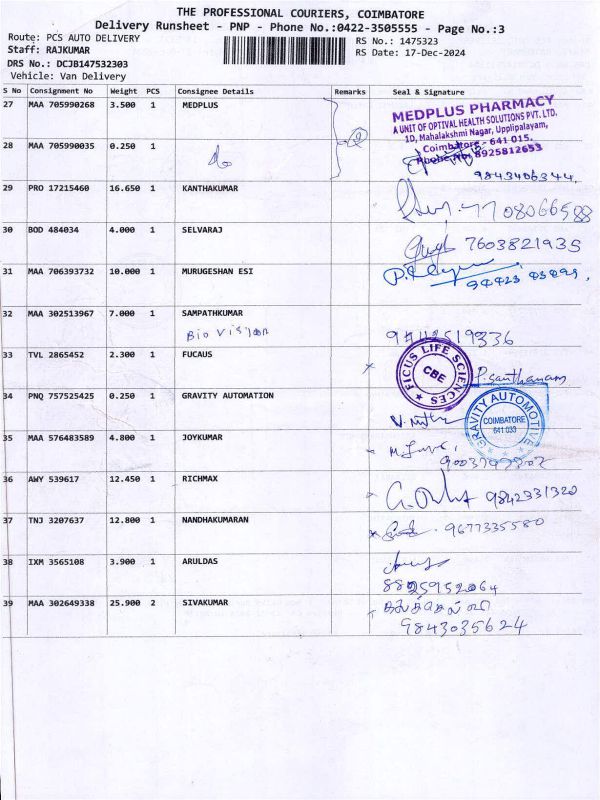 THE PROFESSIONAL COURIERS, COIMBATORE
Delivery Runsheet - PNP - Phone No.:0422-3505555 - Page No.:3
Route: PCS AUTO DELIVERY
Staff: RAJKUMAR
RS No.: 1475323
RS Date: 17-Dec-2024
DRS No.: DCJB147532303
Vehicle: Van Delivery
S No Consignment No Weight PCS Consignee Details Remarks Seal & Signature
27 MAA 705990268 3.500 1 MEDPLUS
MEDPLUS PHARMACY
A UNIT OF OPTIVAL HEALTH SOLUTIONS PVT. LTD.
1D, Mahalakshmi Nagar, Upplipalayam,
Coimbatore - 641 015.
Phone No: 8925812653
28 MAA 705990035 0.250 1
do
9843406344
29 PRO 17215460 16.650 1 KANTHAKUMAR
7708066588
30 BOD 484034 4.000 1 SELVARAJ
7603821935
31 MAA 706393732 10.000 1 MURUGESHAN ESI
32 MAA 302513967 7.000 1 SAMPATHKUMAR
Bio Vision
33 TVL 2865452 2.300 1 FUCAUS
FICUS LIFE SCIENCES
CBE
P. Santhanam
34 PNQ 757525425 0.250 1 GRAVITY AUTOMATION
GRAVITY AUTOMOTIVE
COIMBATORE
641 033
35 MAA 576483589 4.800 1 JOYKUMAR
36 AWY 539617 12.450 1 RICHMAX
9842331320
37 TNJ 3207637 12.800 1 NANDHAKUMARAN
9677335580
38 IXM 3565108 3.900 1 ARULDAS
8825952064
39 MAA 302649338 25.900 2 SIVAKUMAR
9843035624